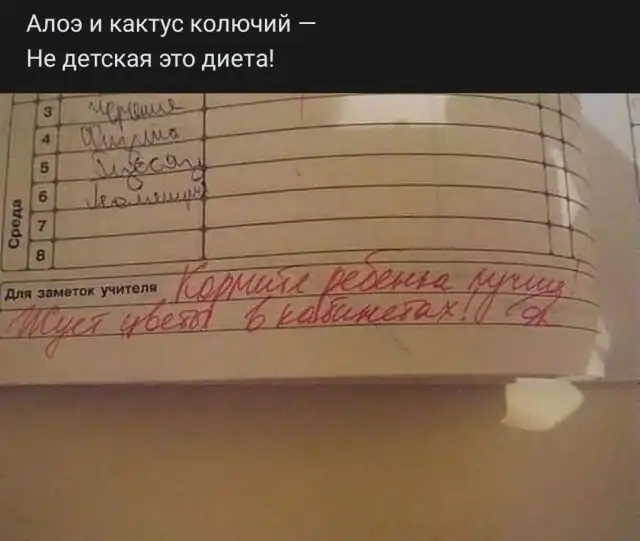 Алоэ и кактус колючий —
Не детская это диета!
3 Черчение
4 Физика
5
6 Геометрия
7
8
Среда
Для заметок учителя Кормите ребенка лучше!
Жует цветы в кабинетах!